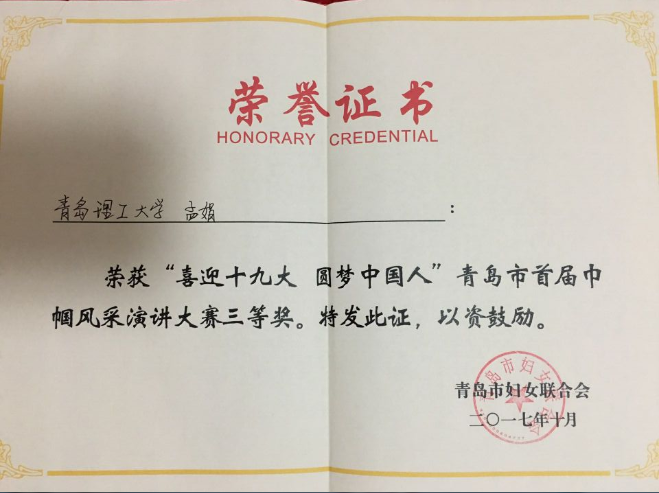 荣誉证书
HONORARY CREDENTIAL
青岛理工大学 孟娟 :
荣获“喜迎十九大 圆梦中国人”青岛市首届巾
帼风采演讲大赛三等奖。特发此证，以资鼓励。
青岛市妇女联合会
二〇一七年十月
青岛市妇女联合会